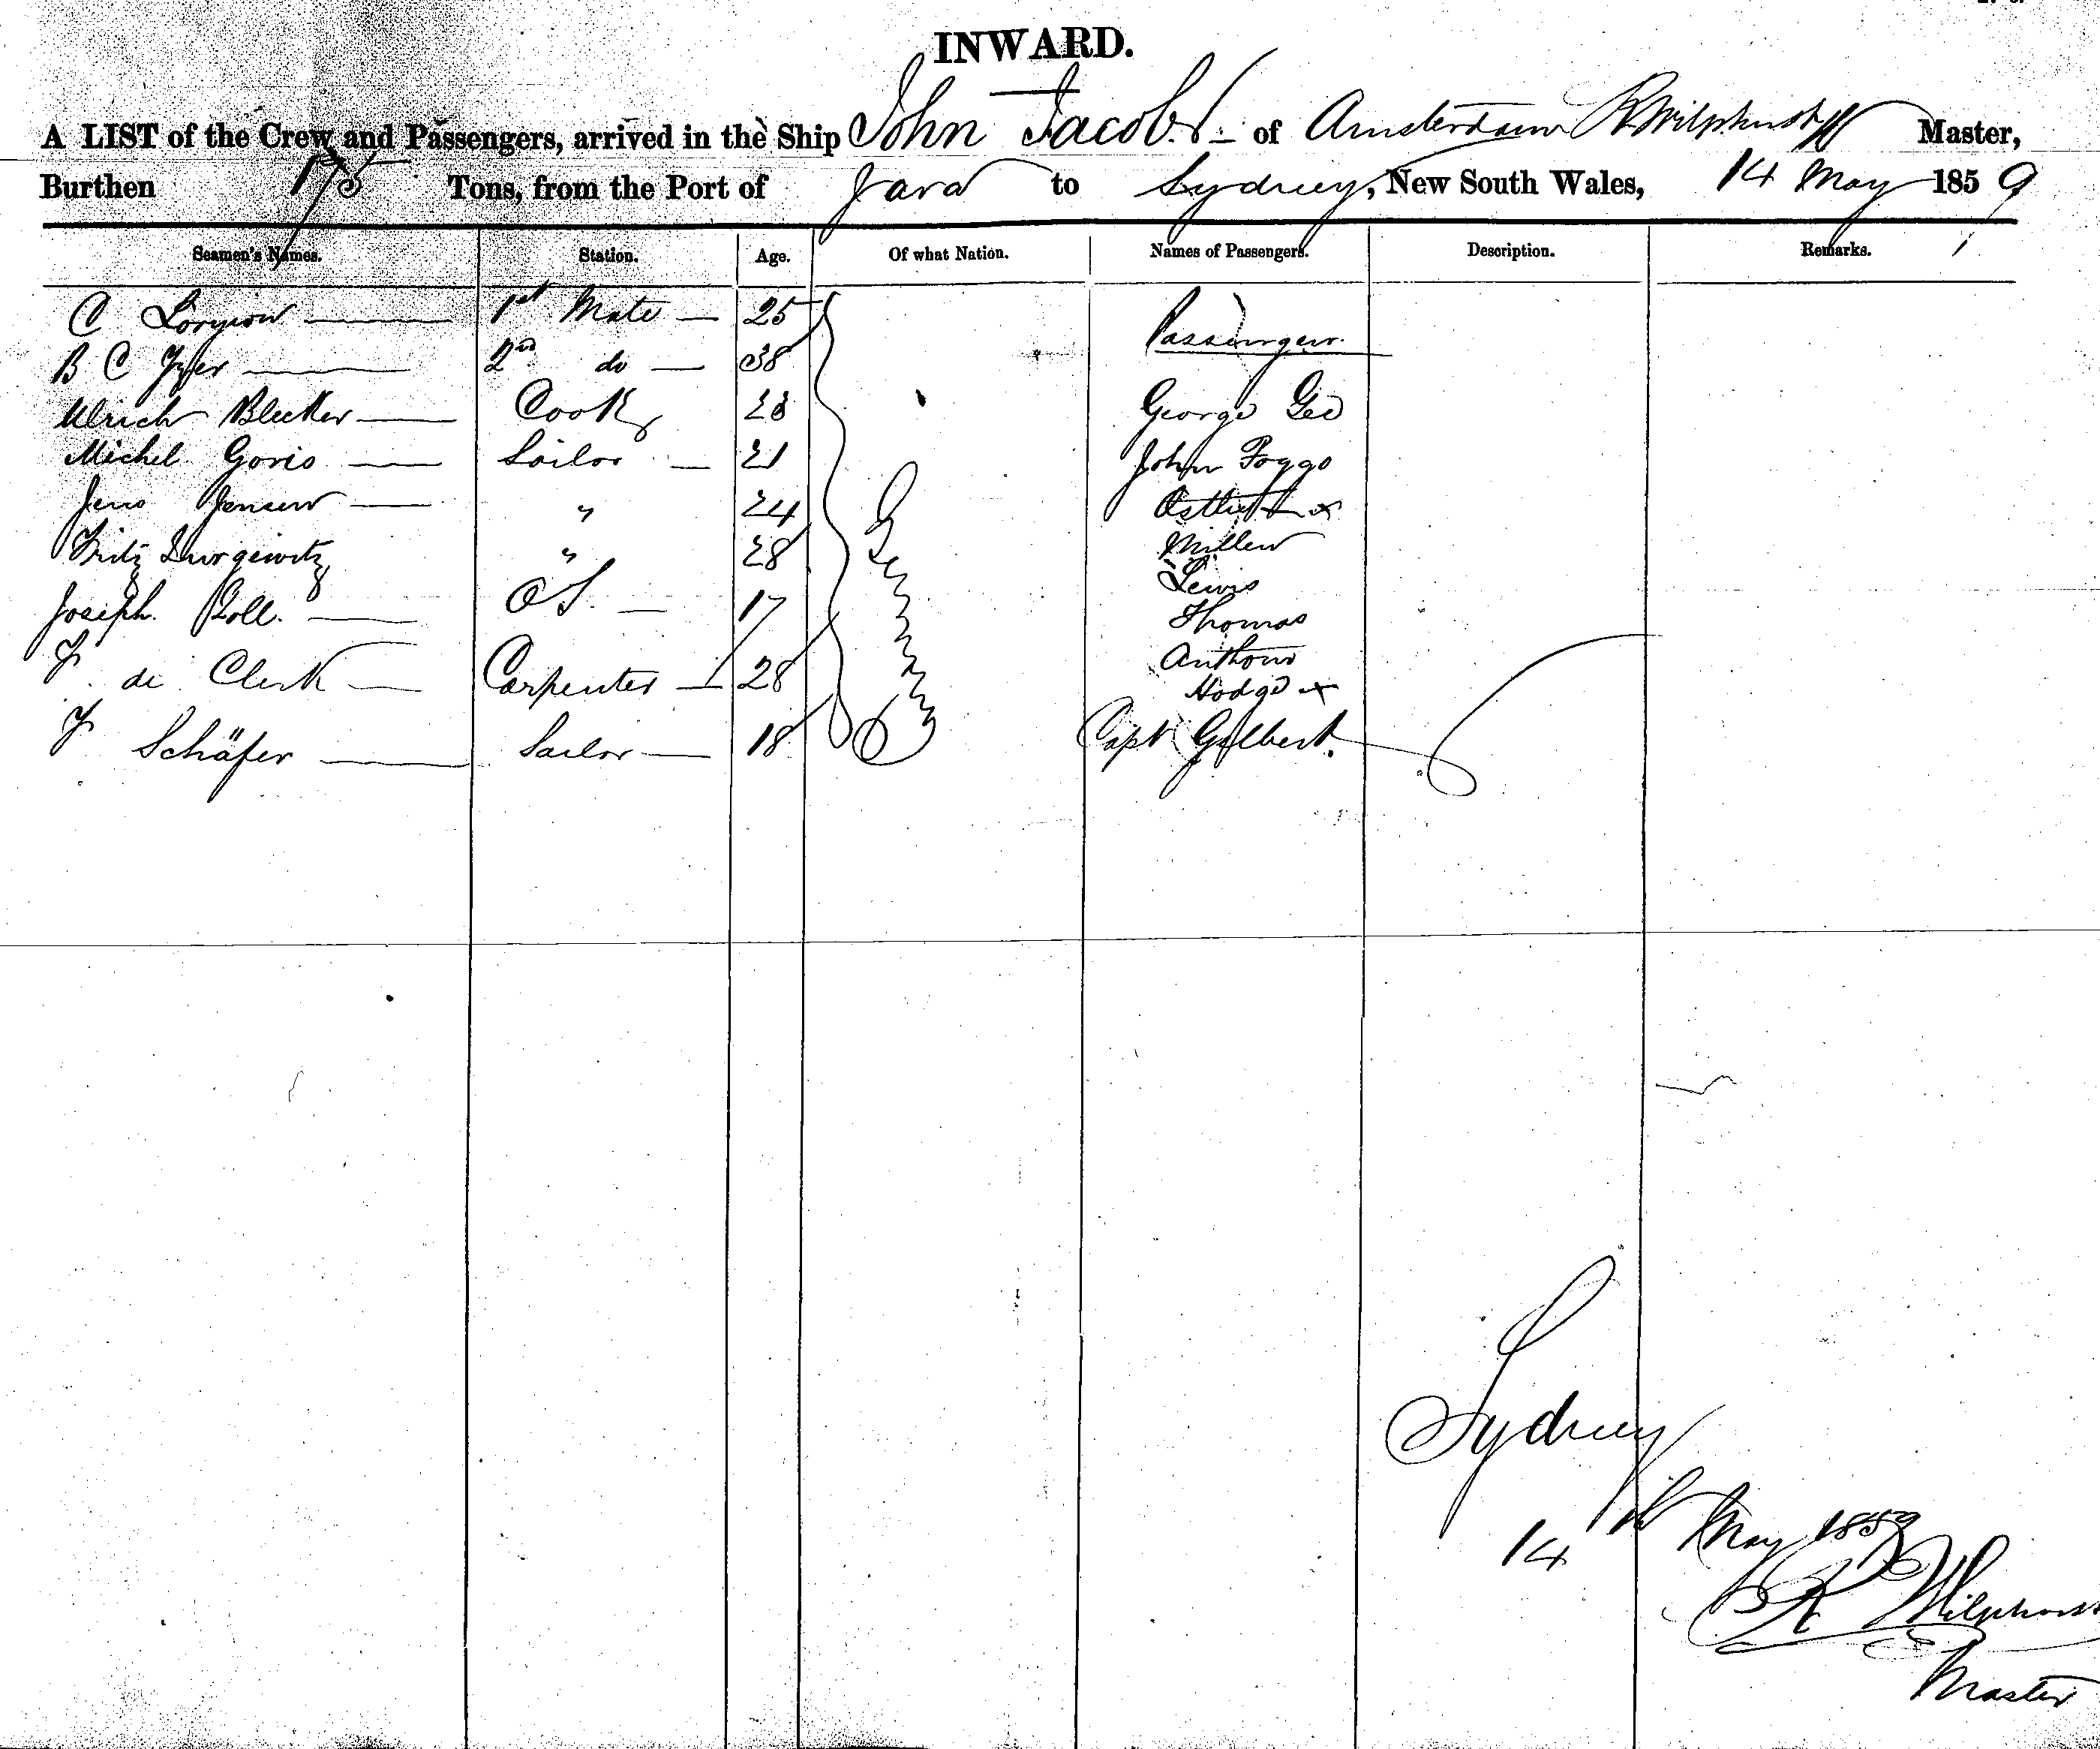 INWARD.
A LIST of the Crew and Passengers, arrived in the Ship John Jacobs of Amsterdam R Wilphorst Master,
Burthen 175 Tons, from the Port of Java to Sydney, New South Wales, 14 May 1859
Seamen's Names. Station. Age. Of what Nation. Names of Passengers. Description. Remarks.
C 1st Mate 25 Passengers.
B C 2nd do 38
Ulrich Blecker Cook 23 George Gee
Michel Goris Sailor 21 John Foggo
Jens Jensen " 24 x
Fritz " 28 Miller
Lewis
Joseph Poll. OS. 17 Thomas
J de Clerk Carpenter 28 Anthony
Hodge x
J Schäfer Sailor 18 Capt Gilbert.
Germany
Sydney
14th May 1859
R Wilphorst
Master